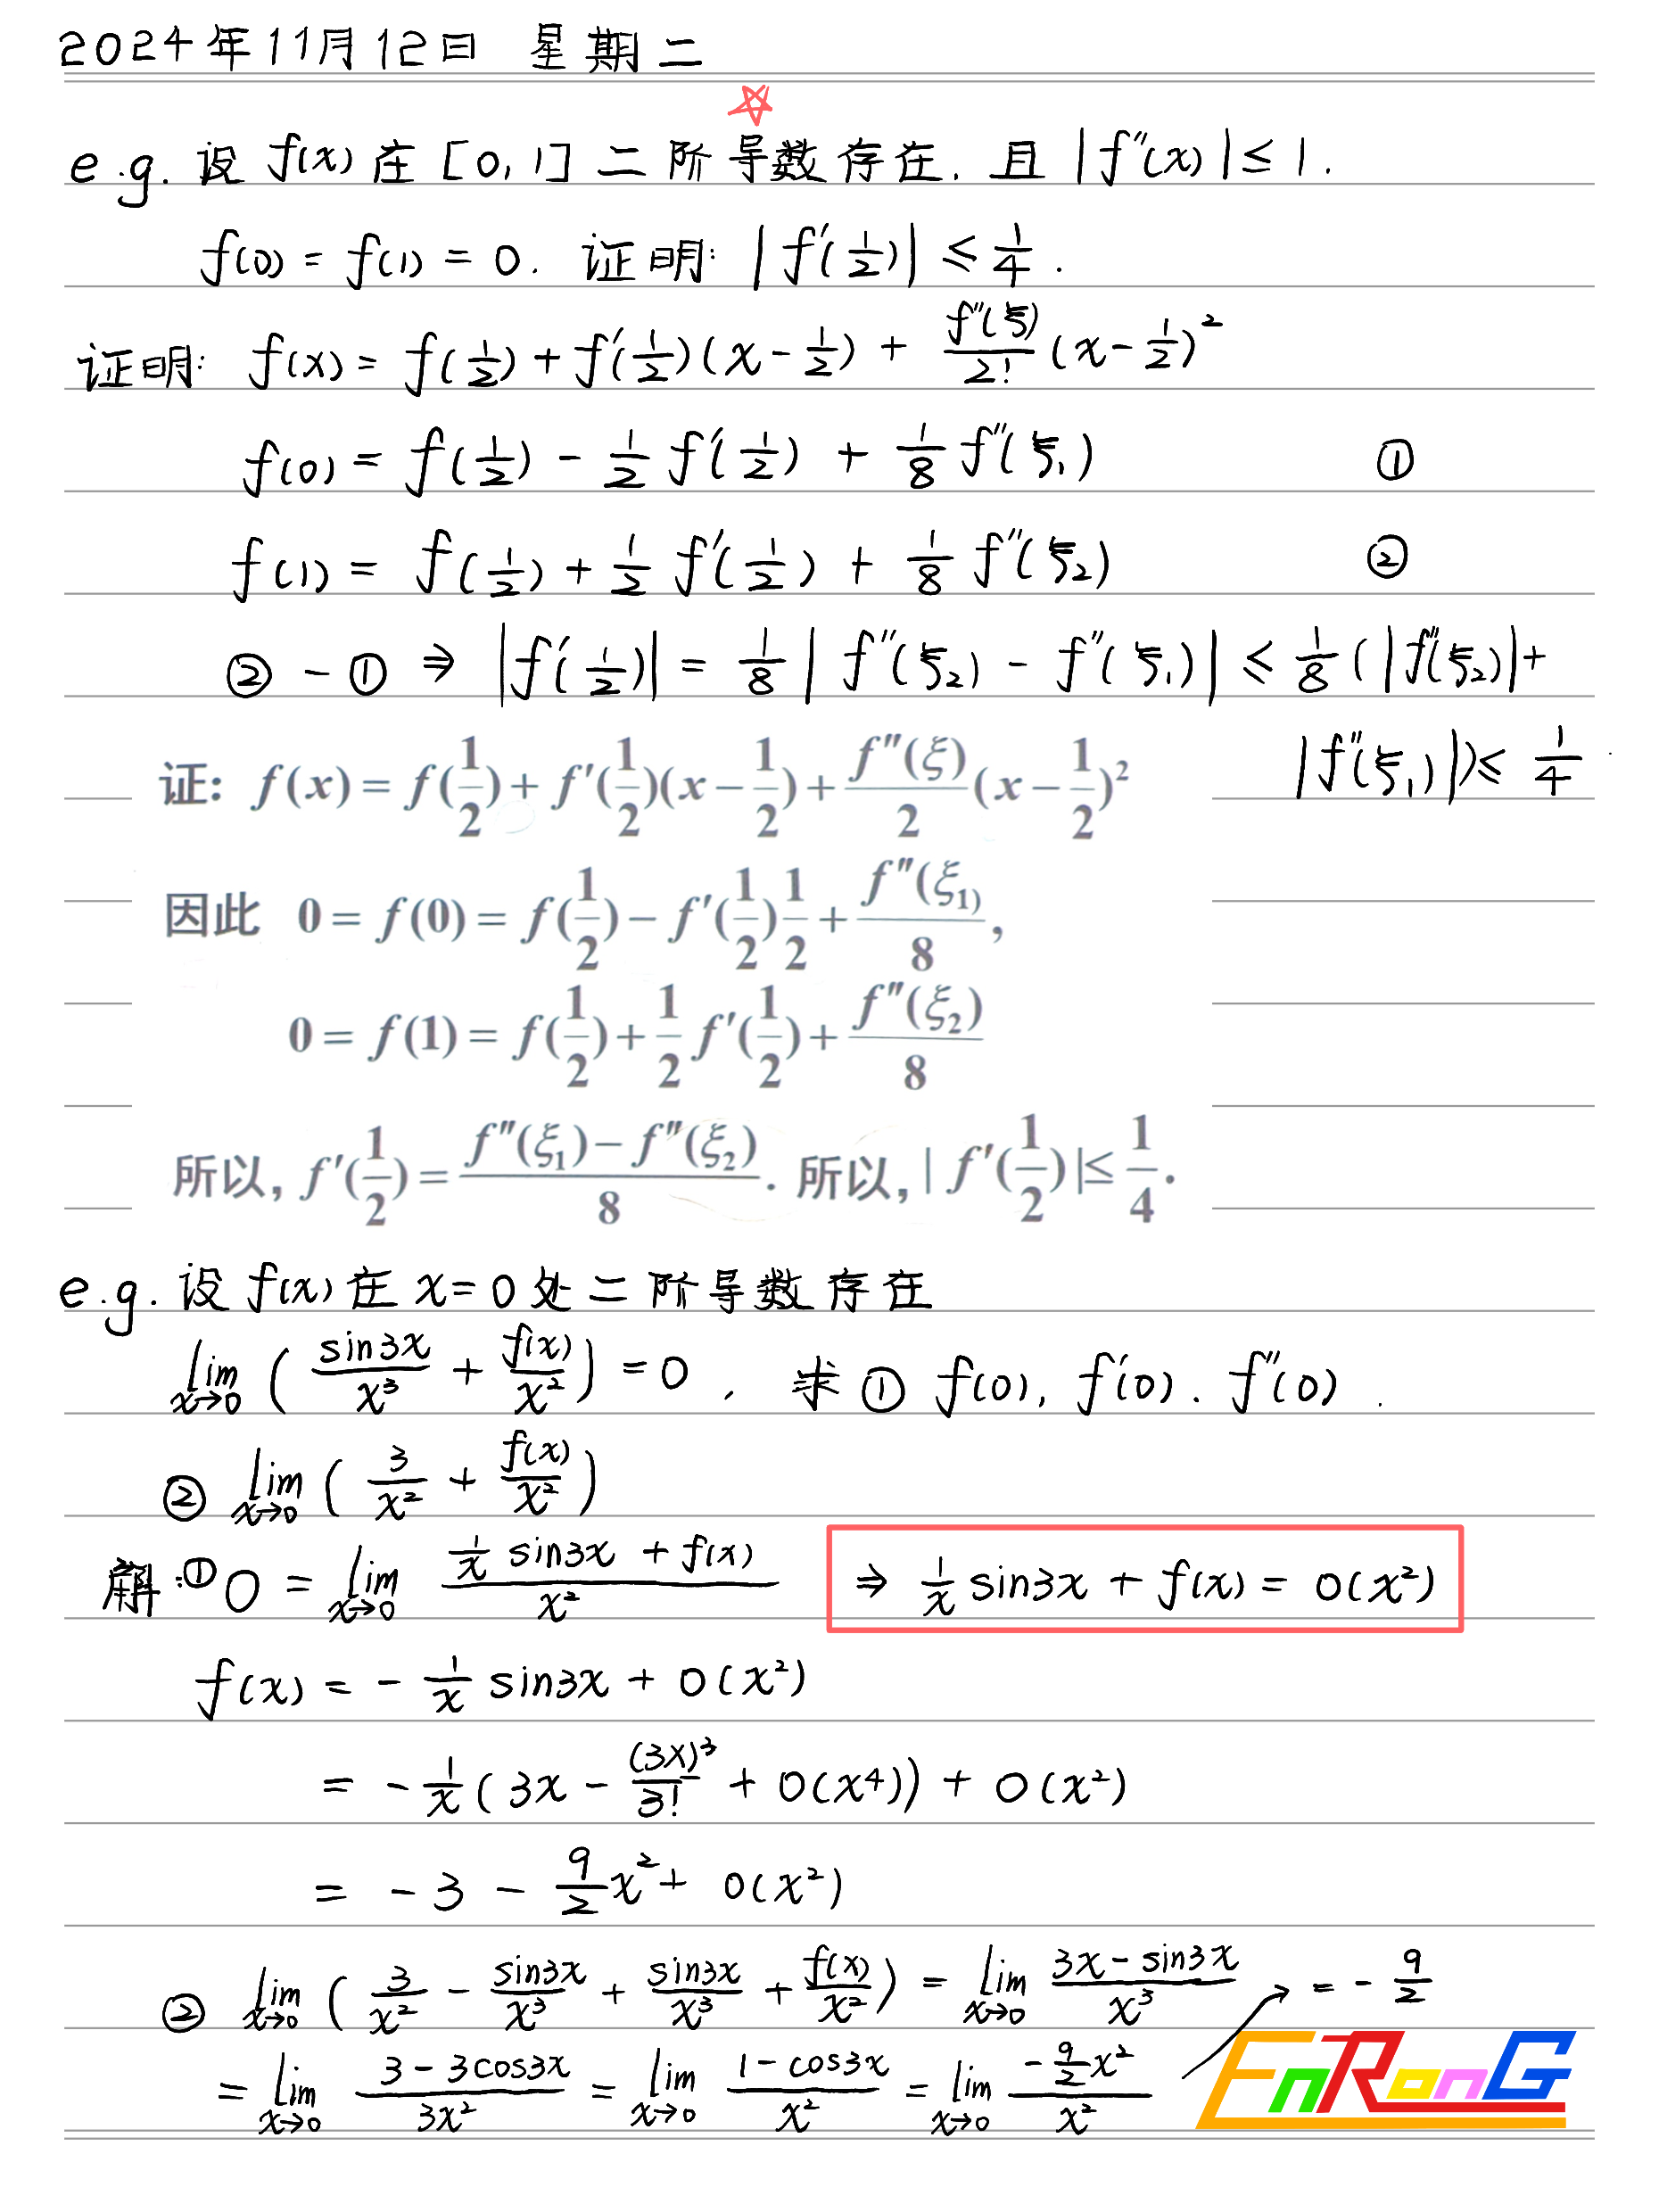 2024年11月12日 星期二
e.g. 设 f(x) 在 [0,1] 二阶导数存在. 且 |f''(x)| ≤ 1.
f(0) = f(1) = 0. 证明: |f'(1/2)| ≤ 1/4.
证明: f(x) = f(1/2) + f'(1/2)(x - 1/2) + f''(ξ)/2! (x - 1/2)²
f(0) = f(1/2) - 1/2 f'(1/2) + 1/8 f''(ξ₁) ①
f(1) = f(1/2) + 1/2 f'(1/2) + 1/8 f''(ξ₂) ②
② - ① ⇒ |f'(1/2)| = 1/8 | f''(ξ₂) - f''(ξ₁) | ≤ 1/8 ( |f''(ξ₂)| +
|f''(ξ₁)| ) ≤ 1/4
证: f(x) = f(1/2) + f'(1/2)(x - 1/2) + f''(ξ)/2 (x - 1/2)²
因此 0 = f(0) = f(1/2) - f'(1/2) 1/2 + f''(ξ₁)/8,
0 = f(1) = f(1/2) + 1/2 f'(1/2) + f''(ξ₂)/8
所以, f'(1/2) = (f''(ξ₁) - f''(ξ₂))/8. 所以, |f'(1/2)| ≤ 1/4.
e.g. 设 f(x) 在 x=0 处二阶导数存在
lim x→0 ( sin3x/x³ + f(x)/x² ) = 0, 求 ① f(0), f'(0). f''(0).
② lim x→0 ( 3/x² + f(x)/x² )
解:① 0 = lim x→0 (1/x sin3x + f(x))/x² ⇒ 1/x sin3x + f(x) = o(x²)
f(x) = - 1/x sin3x + o(x²)
= - 1/x ( 3x - (3x)³/3! + o(x⁴) ) + o(x²)
= - 3 - 9/2 x² + o(x²)
② lim x→0 ( 3/x² - sin3x/x³ + sin3x/x³ + f(x)/x² ) = lim x→0 (3x - sin3x)/x³ = - 9/2
= lim x→0 (3 - 3cos3x)/3x² = lim x→0 (1 - cos3x)/x² = lim x→0 (- 9/2 x²)/x²
EnRonG